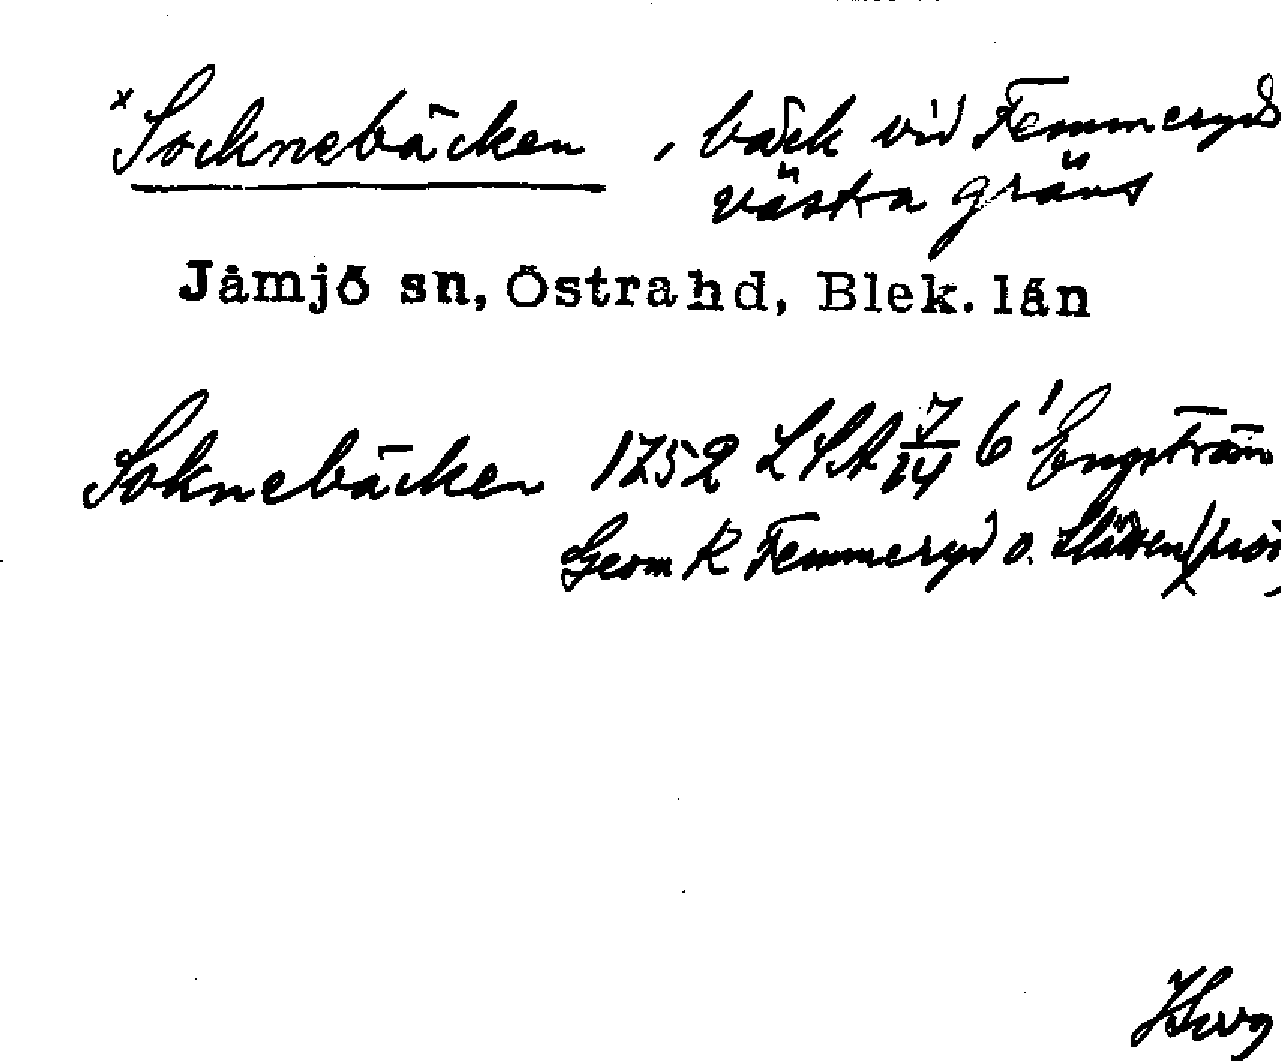 x Socknebäcken, bäck vid Femmeryds
västra gräns
Jämjö sn, Östra hd, Blek. län
Soknebäcken 1752 LSA 7/14 6' Engström
Geom K Femmeryd o.